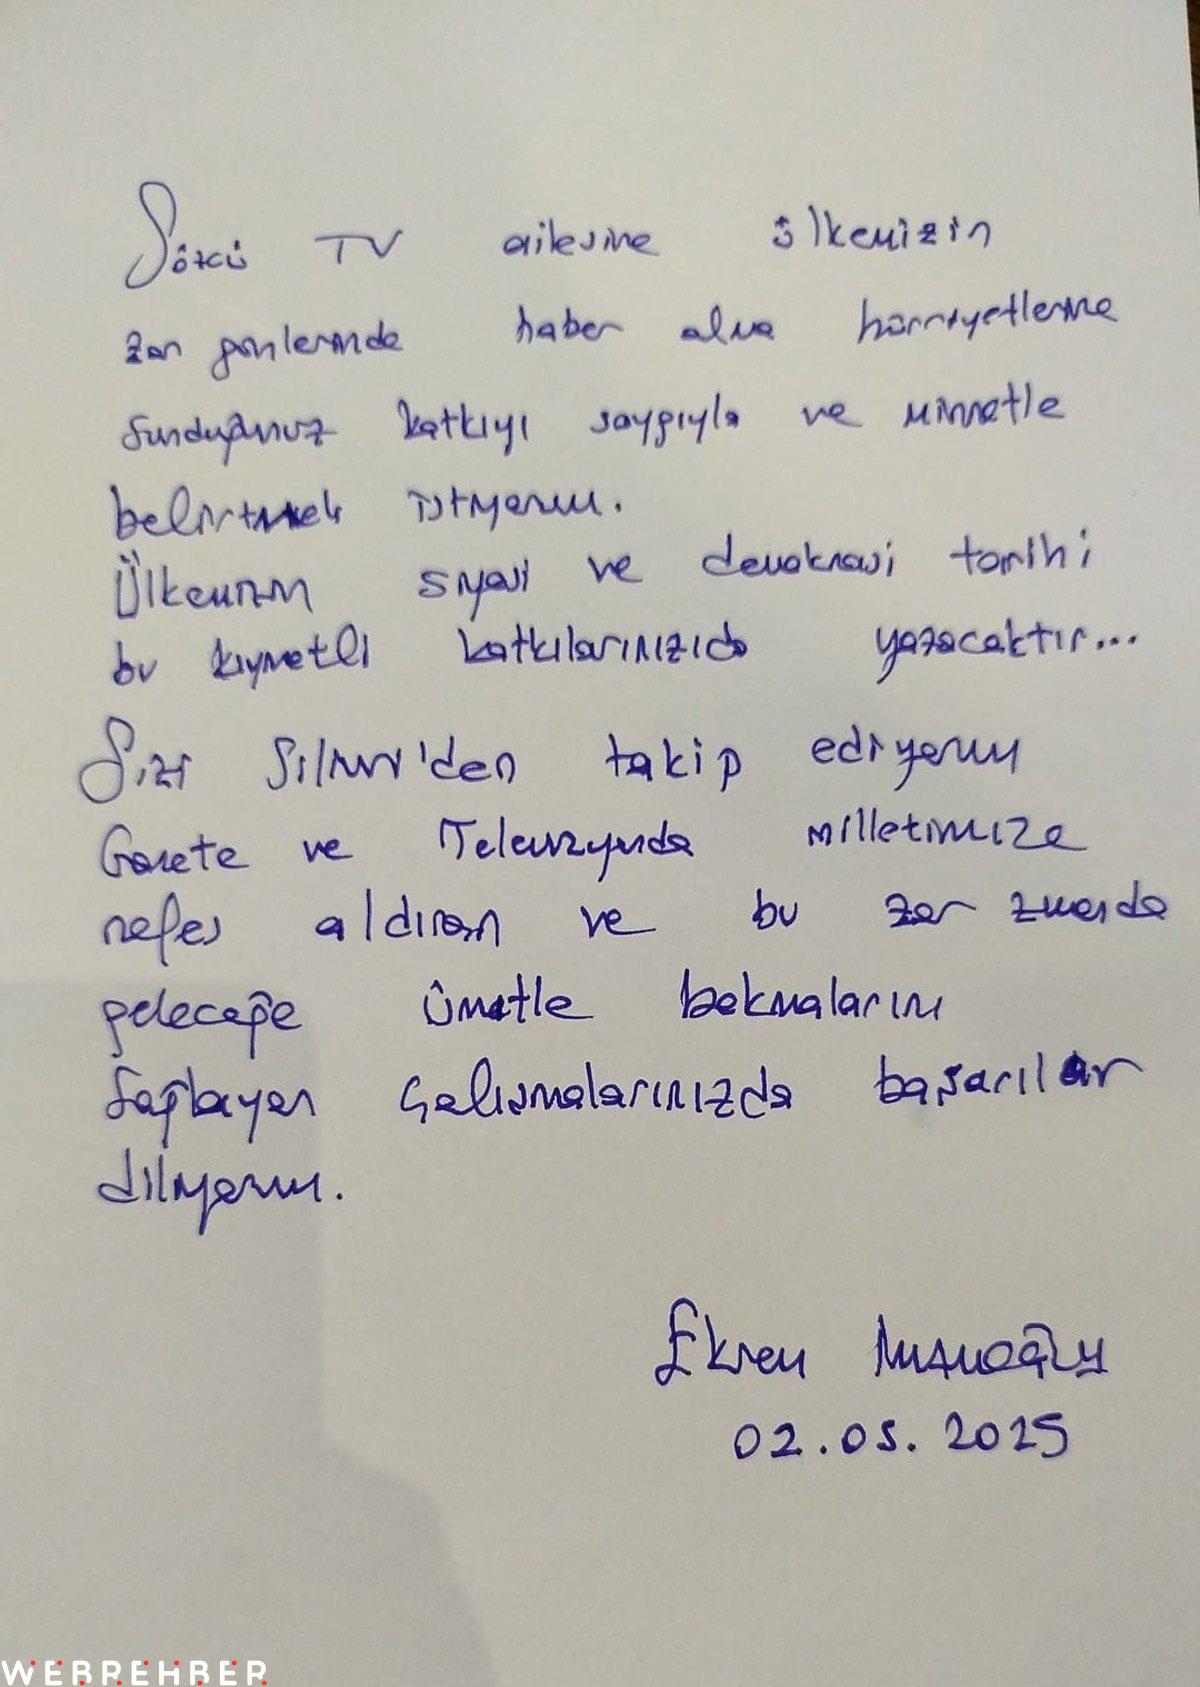 Sözcü TV ailesine ülkemizin
zor günlerinde haber alma hürriyetlerine
sunduğunuz katkıyı saygıyla ve minnetle
belirtmek istiyorum.
Ülkemizin siyasi ve demokrasi tarihi
bu kıymetli katkılarınızıda yazacaktır...
Sizi Silivri'den takip ediyorum
Gazete ve Televizyonda milletimize
nefes aldıran ve bu zor zamanda
geleceğe ümitle bakmalarını
sağlayan çalışmalarınızda başarılar
diliyorum.
Ekrem İmamoğlu
02.05.2025
WEBREHBER